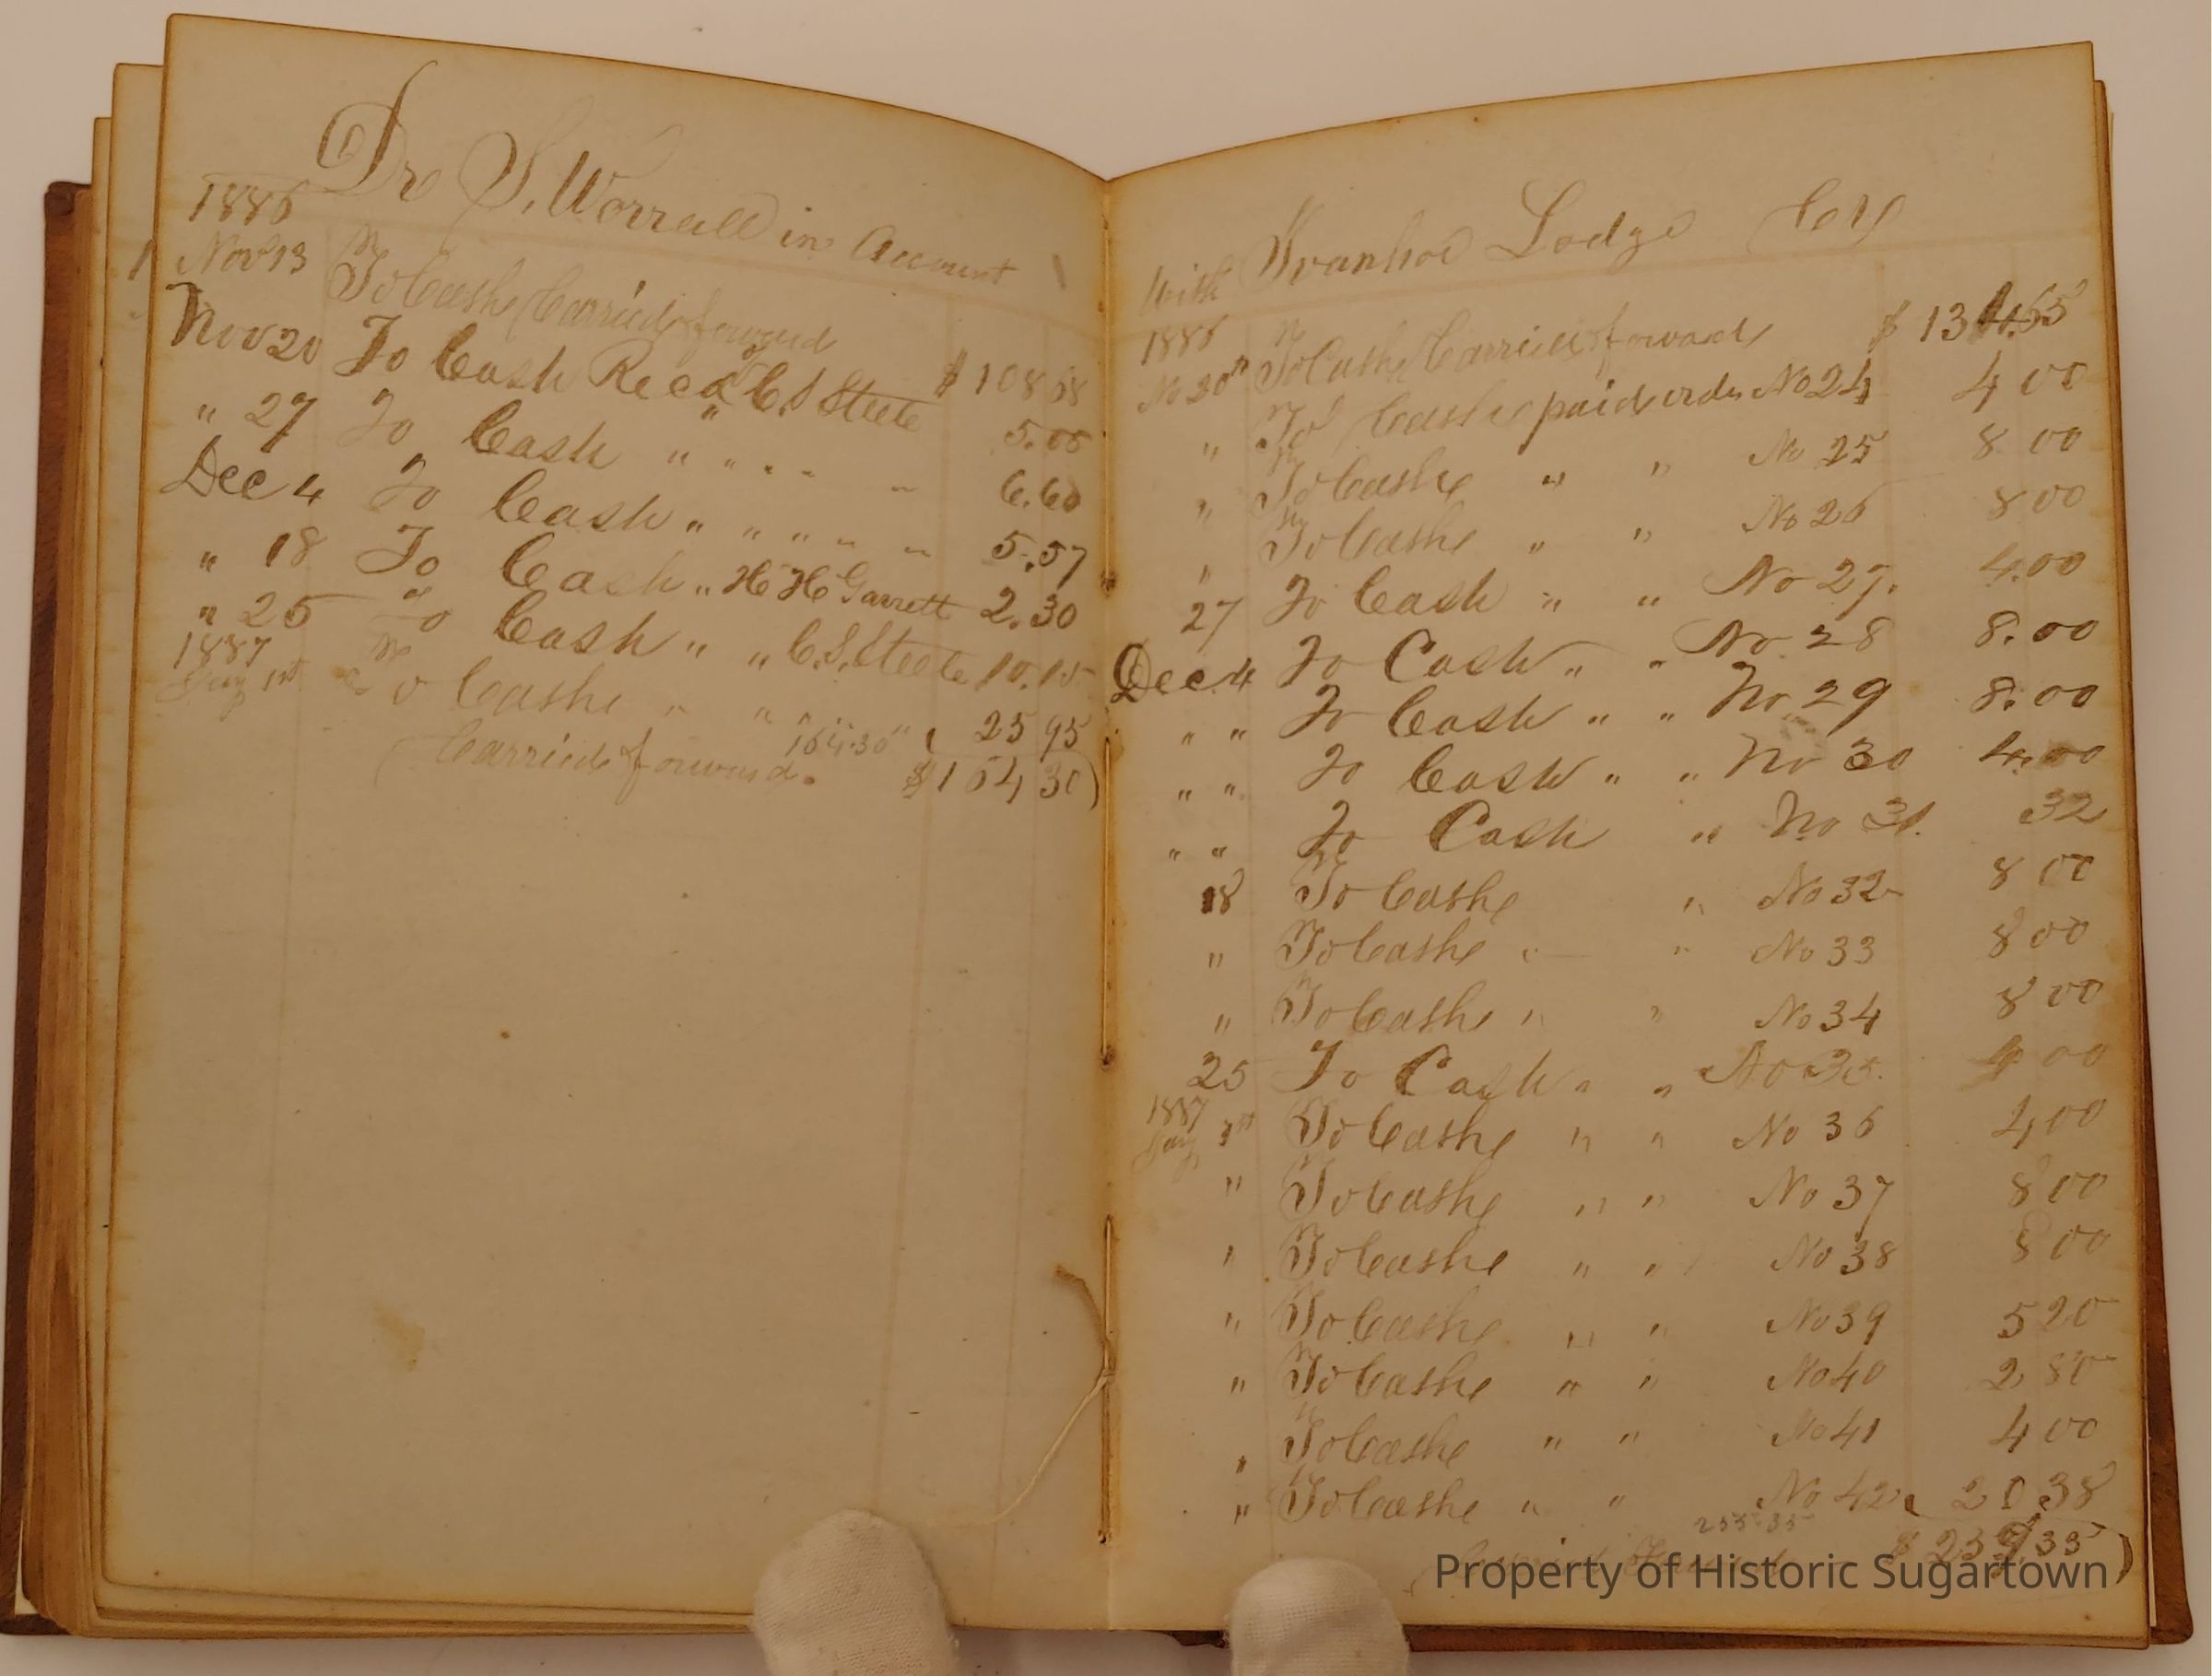 Dr S. Worrall in Account
1886
Nov 13 To Cashe Carried forward $108 68
Nov 20 To Cash Recd of C S Steete 5.05
" 27 To Cash " " " " " 6.60
Dec 4 To Cash " " " " " 5.57
" 18 To Cash " H H Garrett 2.30
" 25 To Cash " " C. S. Steete 10.15
1887
Jany 1st To Cashe " " " 25 95
164.30
Carried forward. $164 30)
With Ivanhoe Lodge
1886
No 20th To Cashe Carried forward $ 134.65
" To Cashe paid ordr No 24 4 00
" To Cashe " " No 25 8 00
" To Cashe " " No 26 8 00
27 To Cash " " No 27. 4.00
Dec. 4 To Cash " " No. 28 8.00
" " To Cash " " No 29 8.00
" " To Cash " " No 30 4.00
" " To Cash " No 31. 32
18 To Cashe " No 32 8 00
" To Cashe " " No 33 8 00
" To Cashe " " No 34 8 00
25 To Cash " " No 35. 4 00
1887
Jany 1st To Cashe " " No 36 4 00
" To Cashe " " No 37 8 00
" To Cashe " " No 38 8 00
" To Cashe " " No 39 5 20
" To Cashe " " No 40 2 80
" To Cashe " " No 41 4 00
" To Cashe " " No 42 20 38
255.35
$ 259 35)
Property of Historic Sugartown